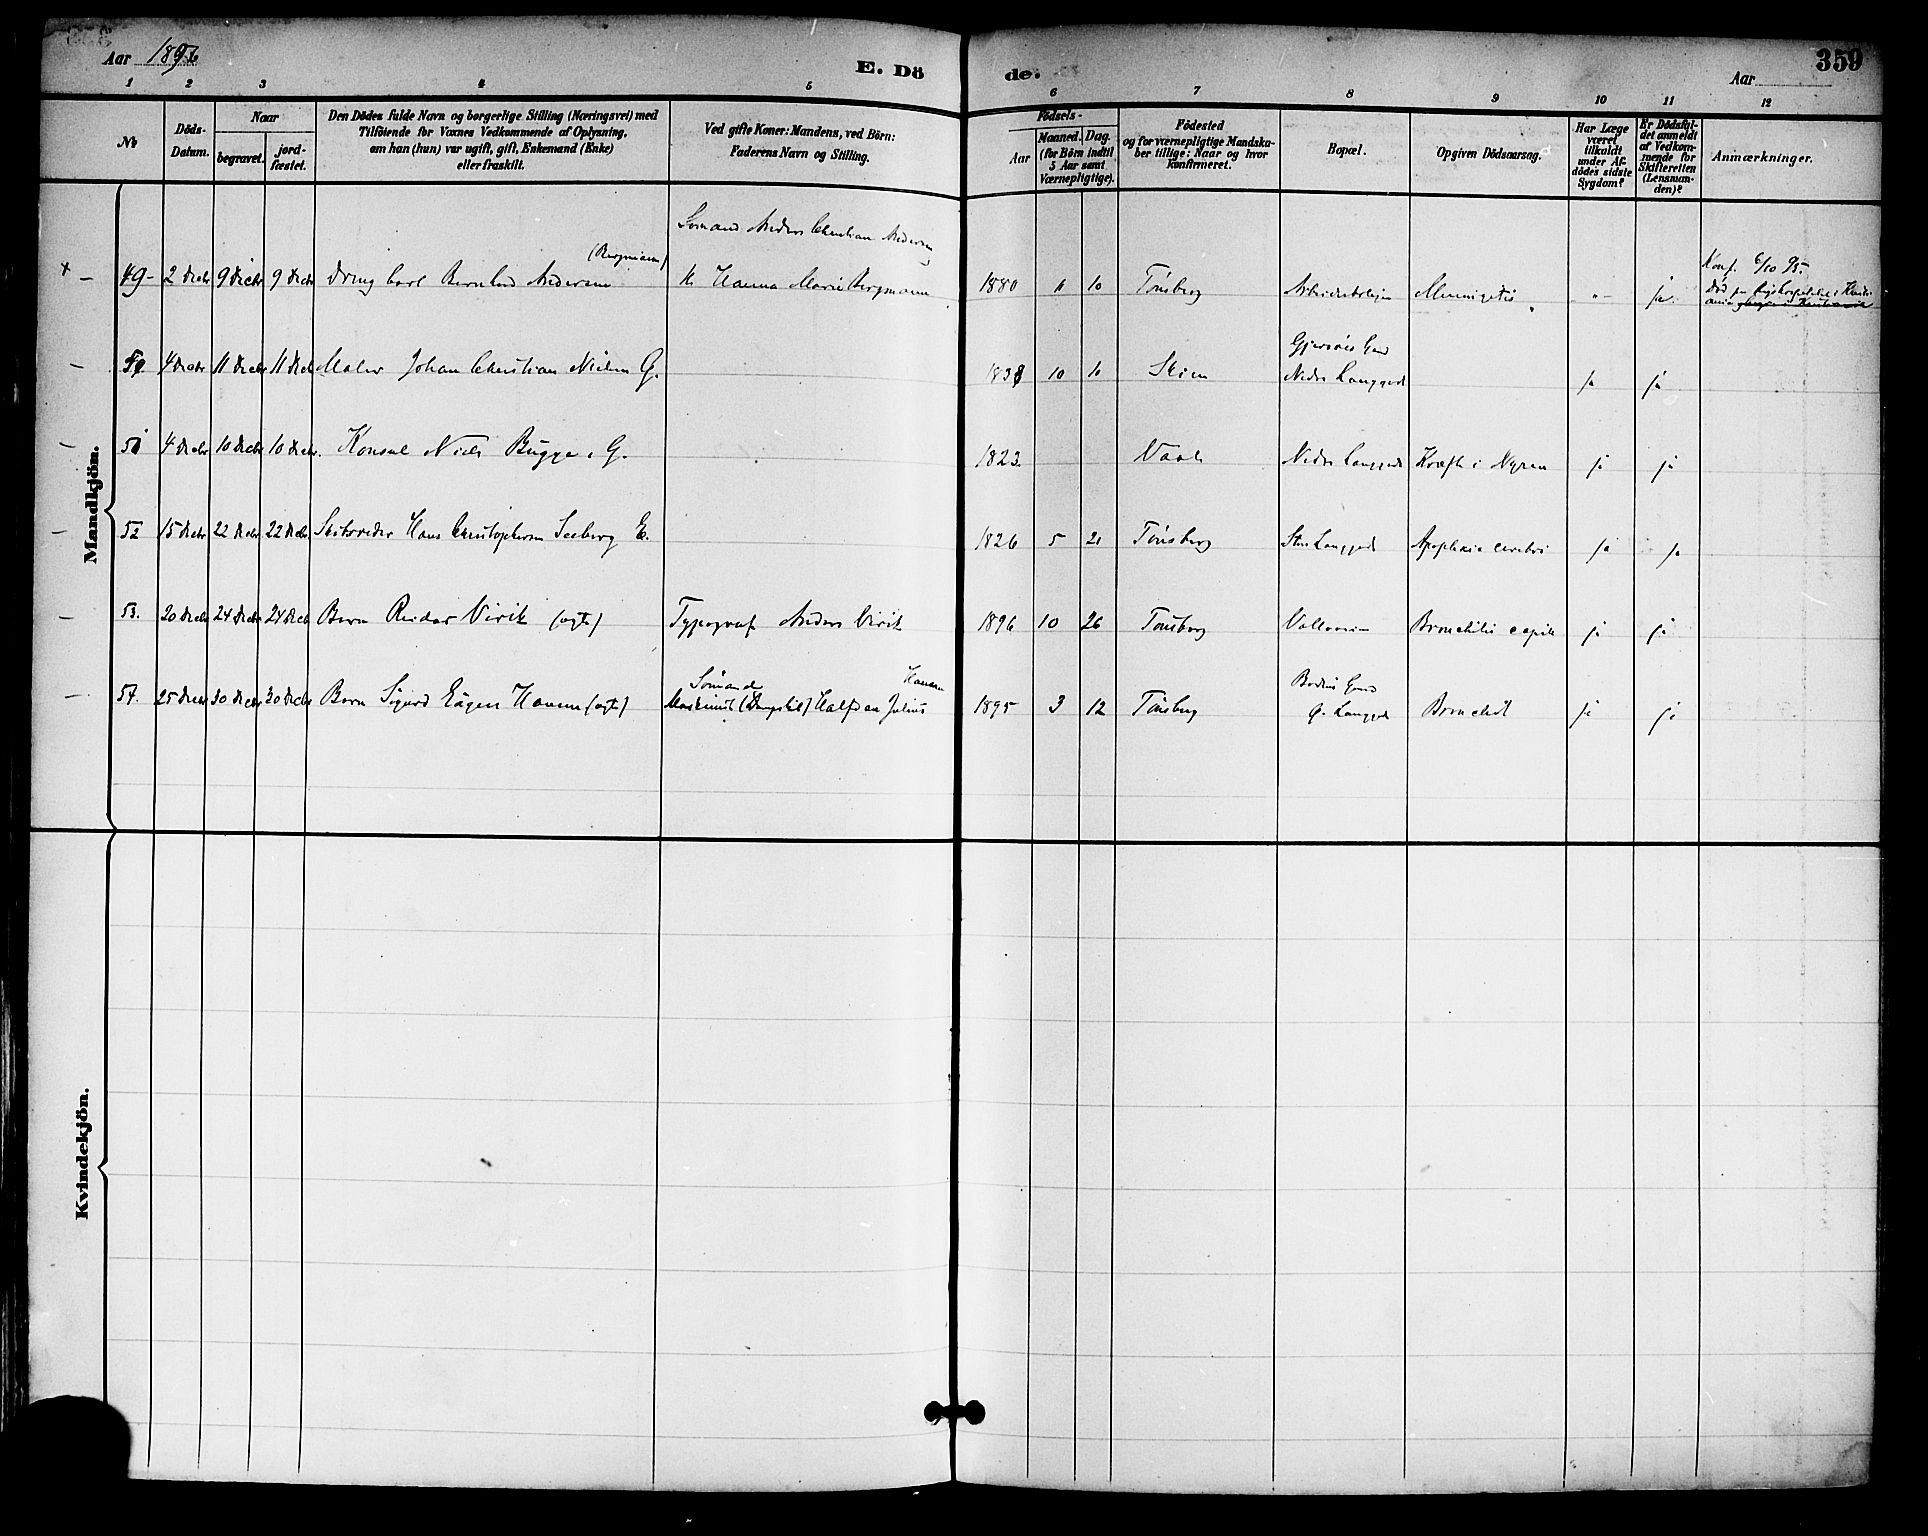 Aar 1896
E. Dö
de.
Aar
359
1 2 3 4 5 6 7 8 9 10 11 12
No
Döds-
Datum.
Naar
begravet.
jord-
fæstet.
Den Dödes fulde Navn og borgerlige Stilling (Næringsvei) med
Tilföiende for Voxnes Vedkommende af Oplysning,
om han (hun) var ugift, gift, Enkemand (Enke)
eller fraskilt.
Ved gifte Koner: Mandens, ved Börn:
Faderens Navn og Stilling.
Födsels-
Aar
Maaned. Dag.
(for Börn indtil
5 Aar samt
Værnepligtige).
Födested
og for værnepligtige Mandska-
ber tillige: Naar og hvor
konfirmeret.
Bopæl.
Opgiven Dödsaarsag.
Har Læge
været
tilkaldt
under Af-
dödes sidste
Sygdom?
Er Dödsfal-
det anmeldt
af Vedkom-
mende for
Skifteretten
(Lensman-
den)?
Anmærkninger.
Mandkjön.
Sømand Anders Christian Andersen
(Bergmann)
49 2 Decbr 9 Decbr 9 Decbr Dreng Carl Bernhard Andersen Hanna Marie Bergmann 1880 10 Tønsberg ja
Konf. 6/10 95.
Død paa Rigshospitalet i Kristi-
ania
Gaard
50 4 Decbr 11 Decbr 11 Decbr Maler Johan Christian Nielsen G. 1838 10 10 Skien Nedre Langgade ja ja
51 4 Decbr 10 Decbr 10 Decbr. Konsul Niels Bugge, G. 1823. Vaale Nedre Langgade Kræft i Nyren ja ja
52 15 Decbr 22 Decbr 22 Decbr Skibsreder Hans Christophersen Seeberg E. 1826 5 21 Tønsberg Stor Langgade Apoplexia cerebri ja ja
53. 20 Decbr 24 Decbr 24 Decbr Barn Reidar Virik (ægte) Typograf Anders Virik 1896 10 26 Tønsberg Bronchitis capill ja ja
Sømand Hansen
Gaard
54. 25 Decbr 30 Decbr 30 Decbr Barn Sigurd Eugen Hansen (ægte) Maskinist Halfdan Julius 1895 3 12 Tønsberg Langgade Bronchit ja ja
Kvindekjön.